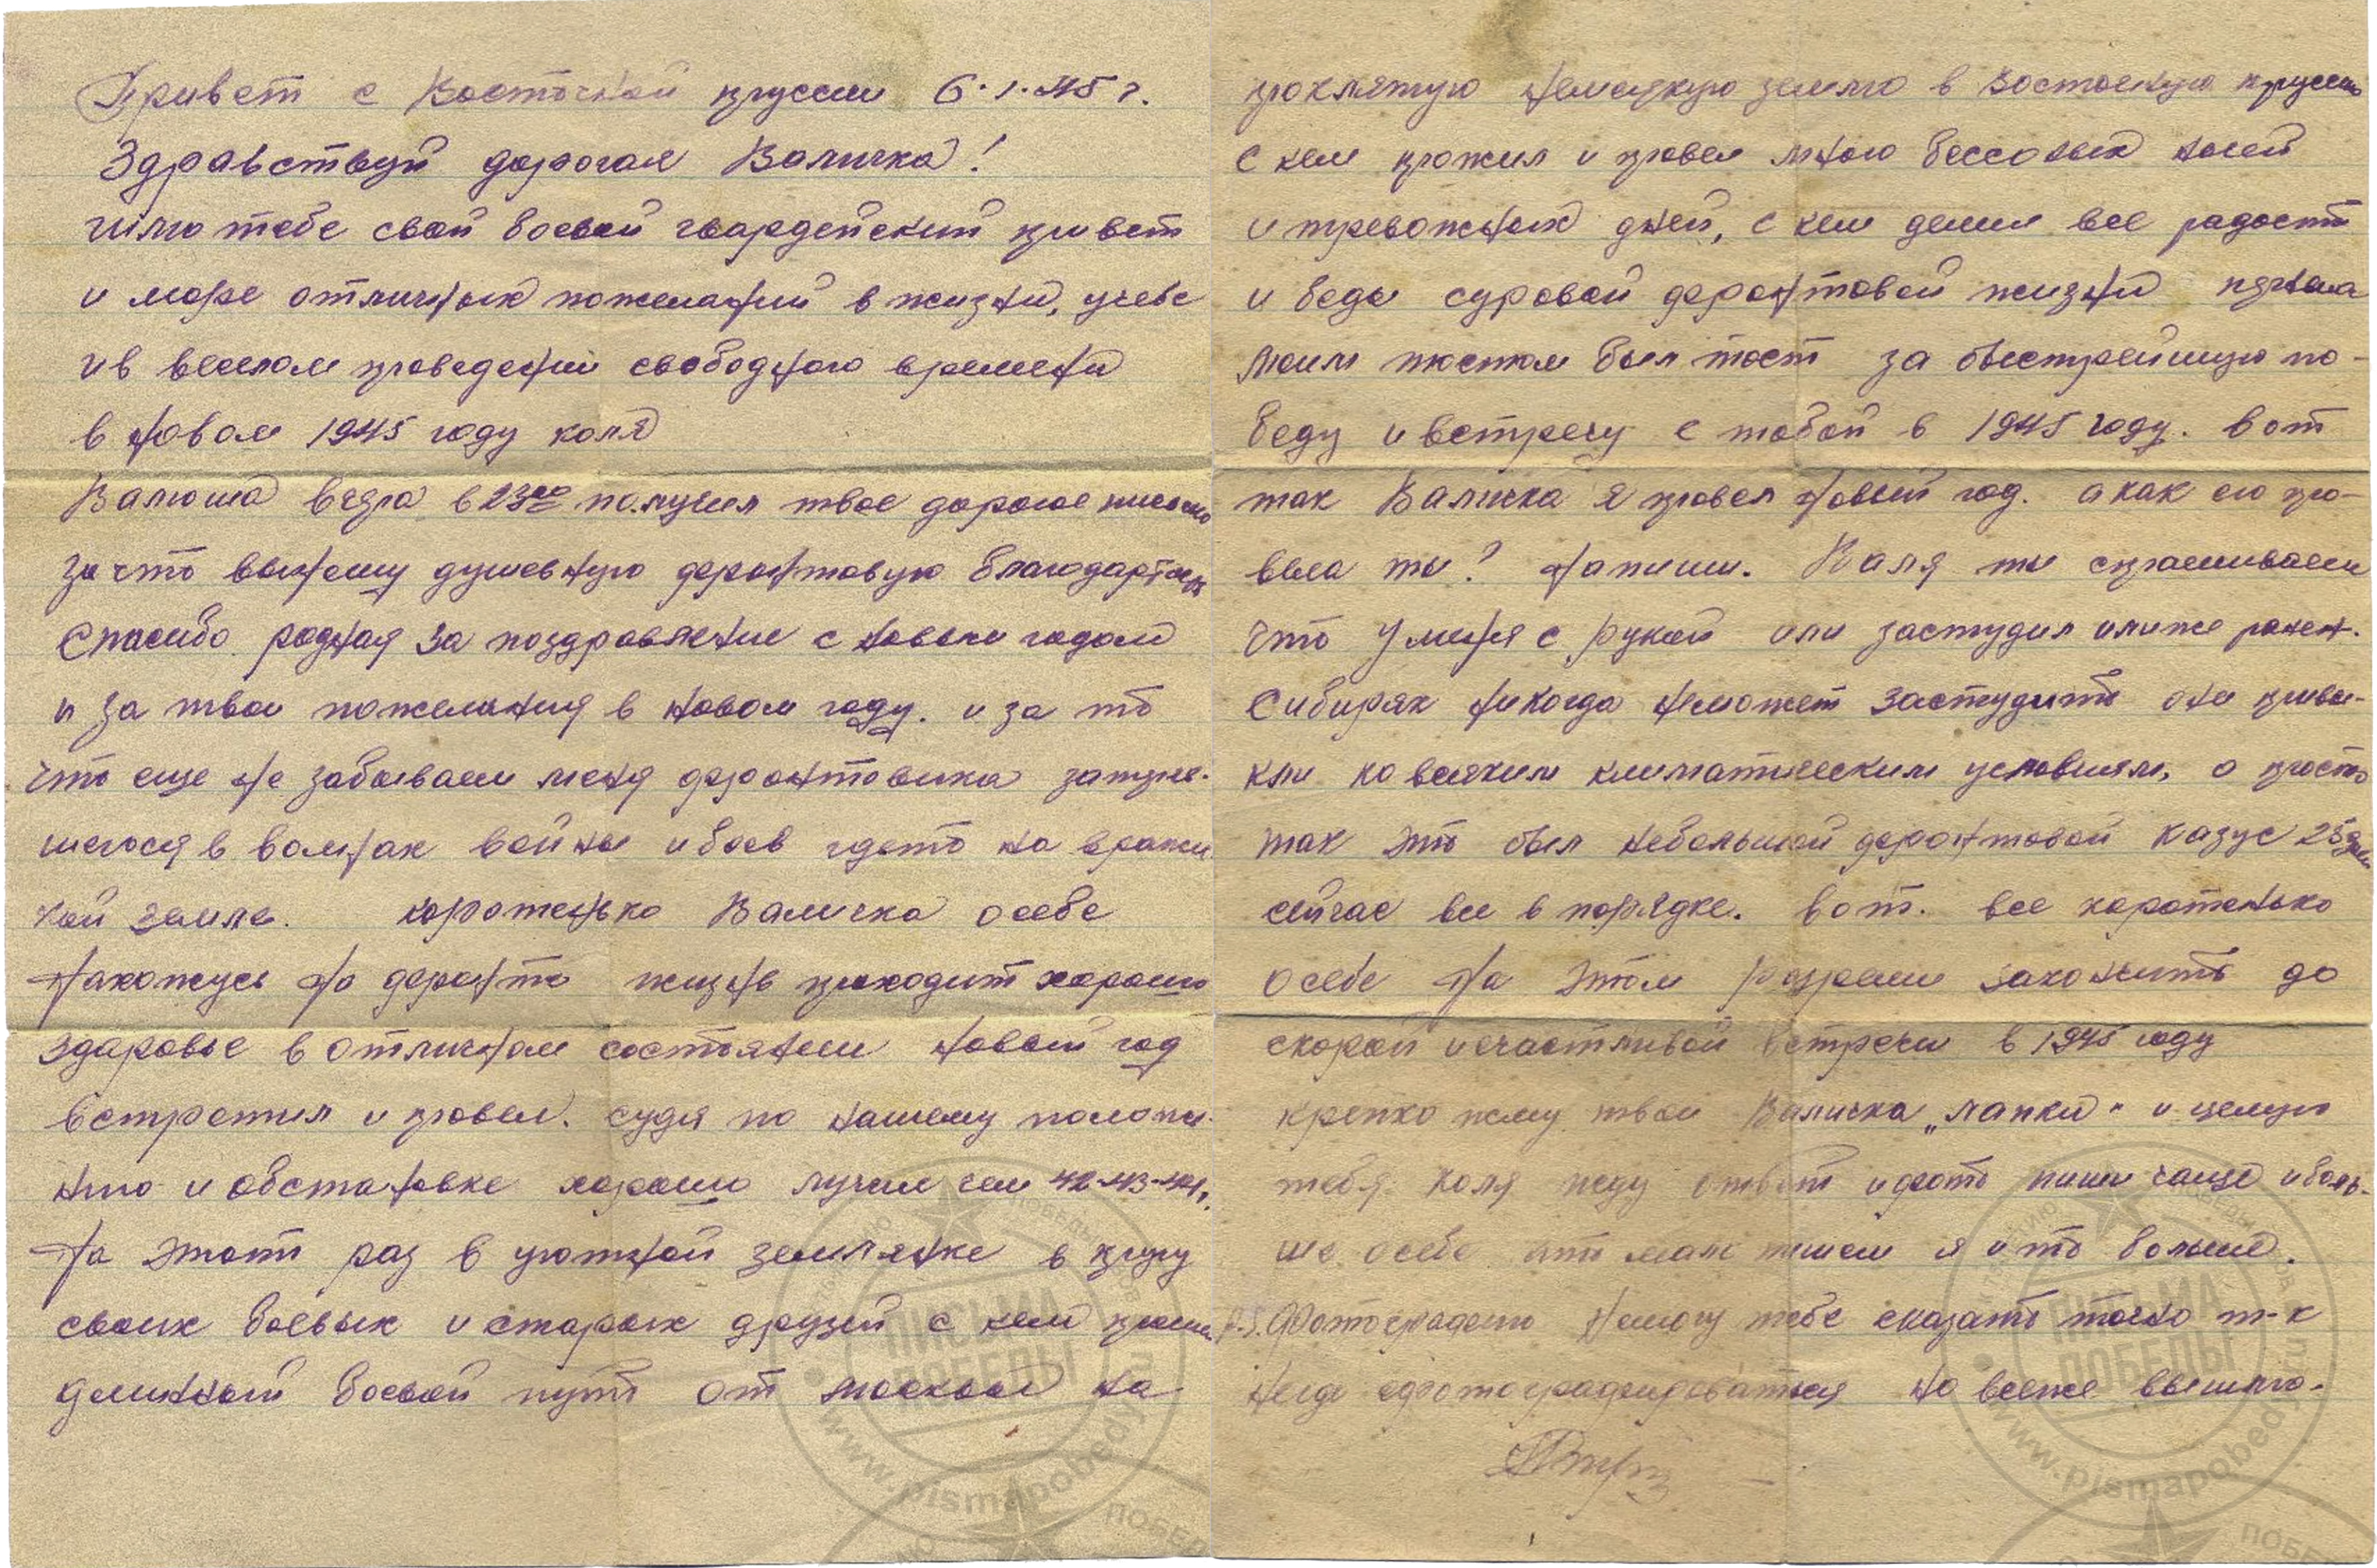 Привет с Восточной пруссии 6.1.45 г.
Здравствуй дорогая Валичка!
шлю тебе свой боевой гвардейский привет
и море отличных пожеланий в жизни, учебе
и в веселом проведении свободного времени
в новом 1945 году коля
Валюша вчера в 23 00 получил твое дорогое письмо
за что выношу душевную фронтовую благодарность
Спасибо родная за поздравление с новым годом
и за твои пожелания в новом году. и за то
что еще не забываеш меня фронтовика затуче-
шегося в волнах войны и боев гдето на вражес
кой земле. коротенько Валичка о себе
нахожусь на фронте жизнь проходит хорошо
здоровье в отличном состоянии новый год
встретил и провел. судя по нашему положе-
нию и обстановке хорошо лучше чем 42-43-44г.
На этот раз в уютной землянке в кругу
своих боевых и старых друзей с кем прошел
длинный боевой путь от москвы на
проклятую немецкую землю в восточную пруссию
с кем прожил и провел много бессоных ночей
и тревожных дней, с кем делил все радости
и беды суровой фронтовой жизни
моим тостом был тост за быстрейшую по-
беду и встречу с тобой в 1945 году. вот
так Валичка я провел новый год. а как его про-
вела ты? напиши. Валя ты спрашиваеш
что у меня с рукой или застудил или же ранен.
Сибиряк никогда неможет застудить они привы-
кли ко всяким климатическим условиям, а просто
так это был небольшой фронтовой казус 25 дней
сейчас все в порядке. вот. все коротенько
о себе На этом разреши закончить до
скорой и счастливой встречи в 1945 году
крепко жму твои Валичка „лапки" и целую
тебя коля жду ответ и фото пиши чаще и боль-
ше о себе а то мало пишеш я и то больше.
P.S. Фотографию немогу тебе сказать точно т-к
негде сфотографироваться но всеже вышлю.
ПИСЬМА
ПОБЕДЫ
www.pismapobedy.ru
ПИСЬМА
ПОБЕДЫ
www.pismapobedy.ru